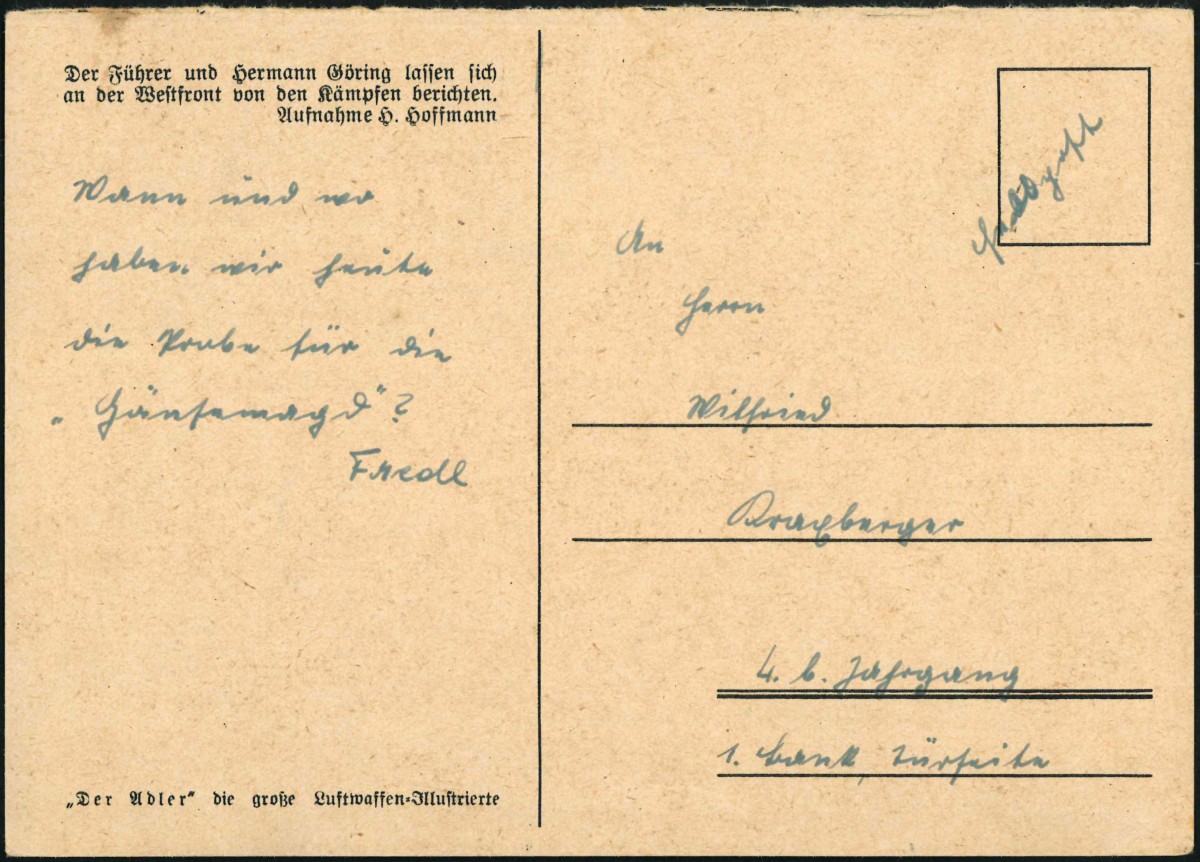 Der Führer und Hermann Göring lassen sich
an der Westfront von den Kämpfen berichten.
Aufnahme H. Hoffmann
Wann und wo
haben wir heute
die Probe für die
„Gänsemagd"?
Friedl
„Der Adler" die große Luftwaffen-Illustrierte
Feldpost
An
Herrn
Wilfried
Kraxberger
4. b. Jahrgang
1. Bank, Türseite